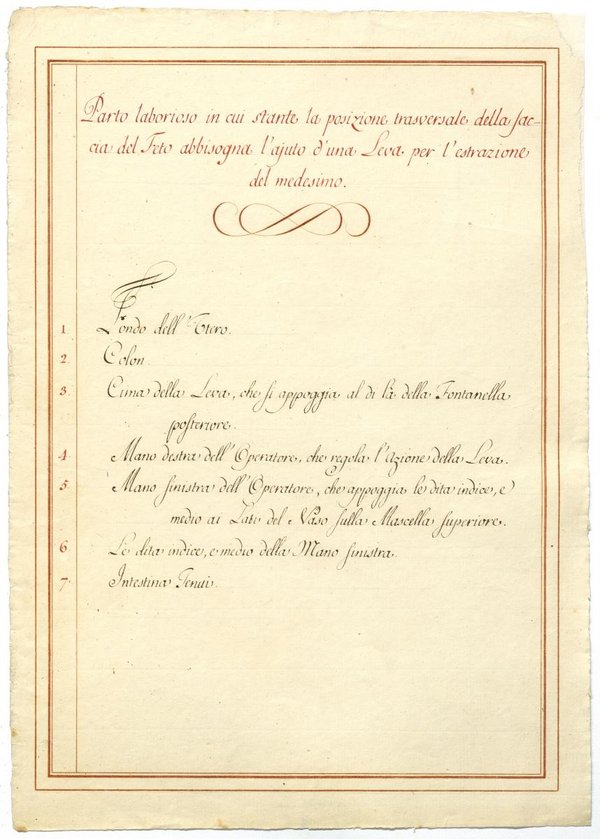 Parto laborioso in cui stante la posizione trasversale della fac-
cia del Feto abbisogna l'ajuto d'una Leva per l'estrazione
del medesimo.
1 Fondo dell'Utero.
2 Colon.
3 Cima della Leva, che si appoggia al di là della Fontanella
posteriore.
4 Mano destra dell'Operatore, che regola l'Azione della Leva.
5 Mano sinistra dell'Operatore, che appoggia le dita indice, e
medio ai Lati del Naso sulla Mascella superiore.
6 Le dita indice, e medio della Mano sinistra.
7 Intestina Tenui.